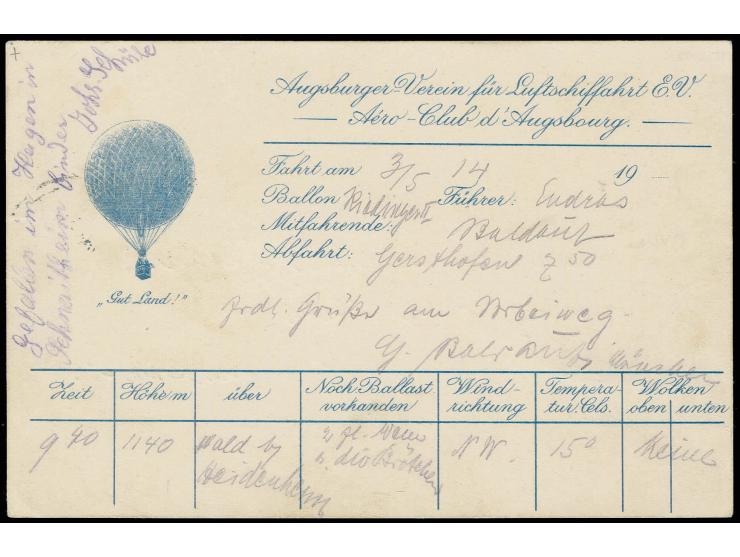 Gefallen im Hagen in
Schnaitheim Finder
Johs.
Augsburger-Verein für Luftschiffahrt E.V.
Aéro-Club d'Augsbourg.
Fahrt am 3/5 14 19
Ballon Riedinger II Führer: Endras
Mitfahrende: Baldauf
Abfahrt: Gersthofen 7 50
„Gut Land!"
frdl. Grüße am
G. Baldauf, München
Zeit Höhe m über Noch Ballast vorhanden Windrichtung Temperatur Cels. Wolken oben unten
9 40 1140 Wald by Heidenheim NW. 15° Keine